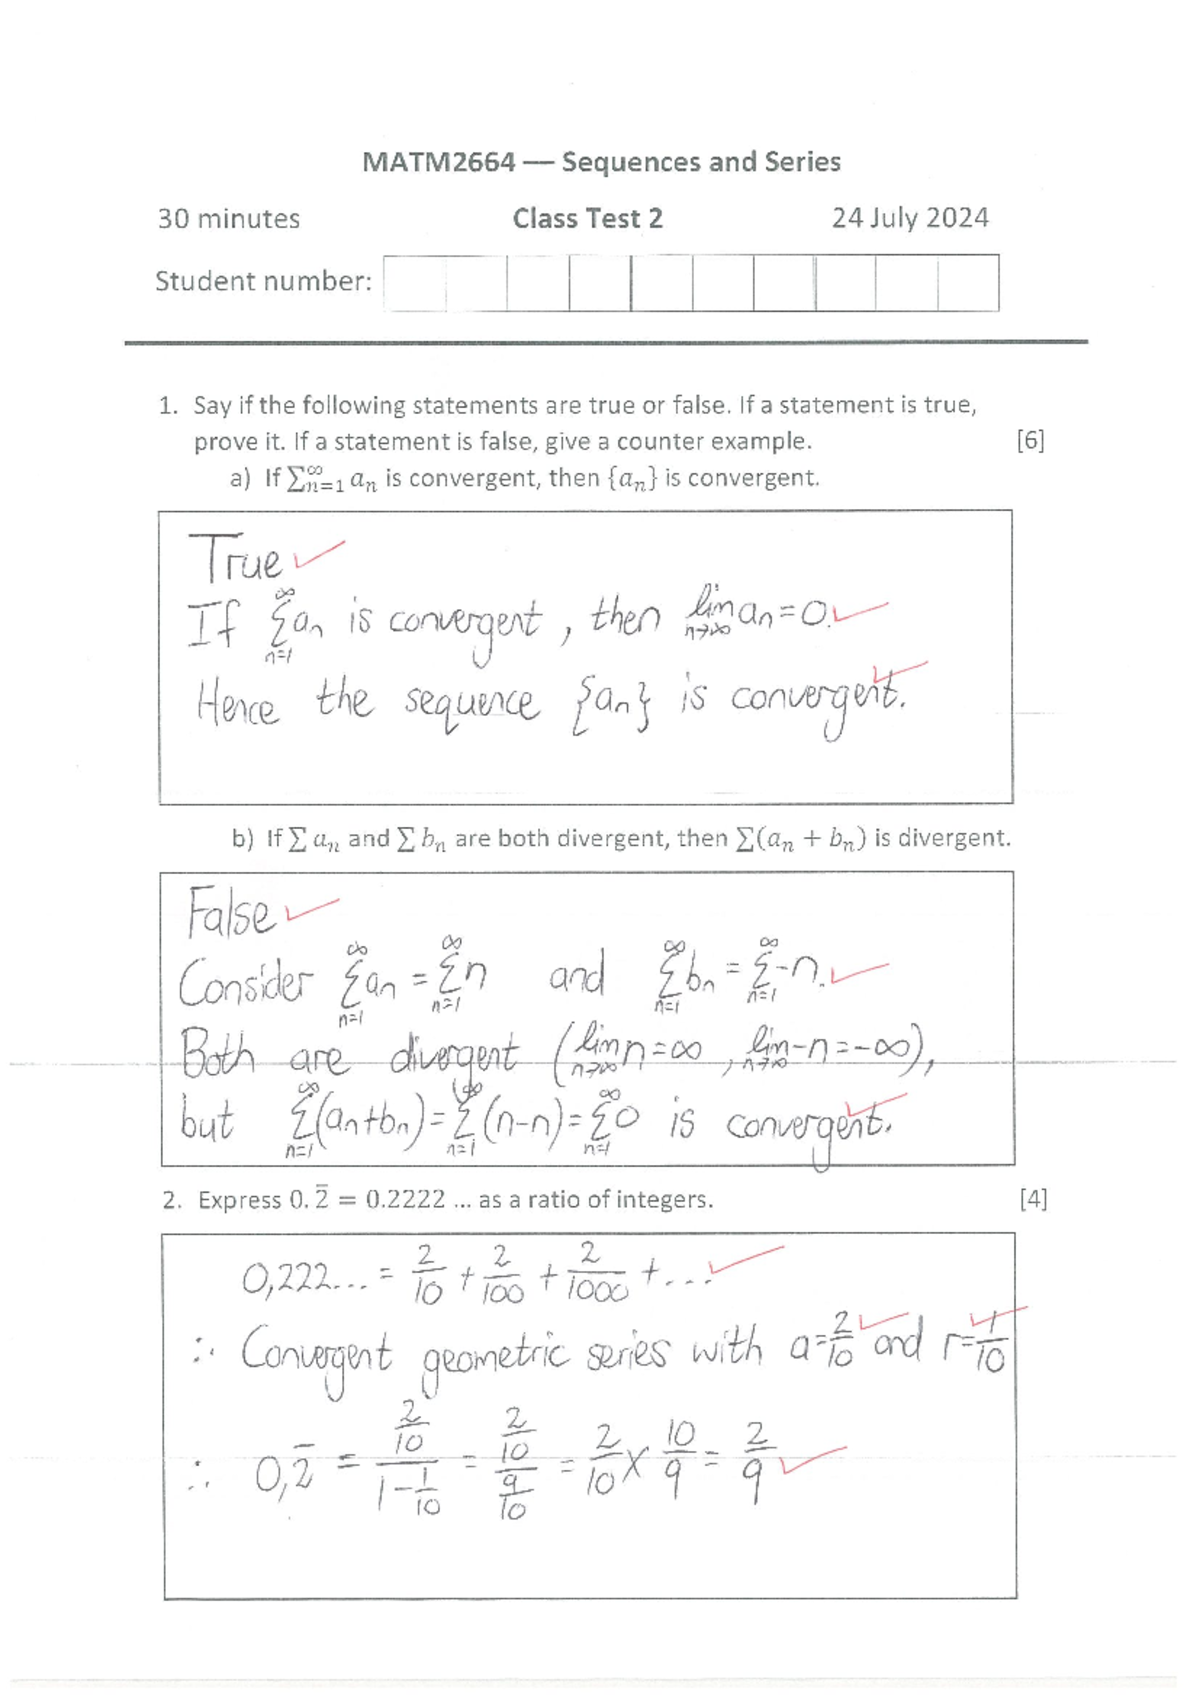 MATM2664 — Sequences and Series
30 minutes Class Test 2 24 July 2024
Student number:
1. Say if the following statements are true or false. If a statement is true,
prove it. If a statement is false, give a counter example. [6]
a) If ∑_{n=1}^{∞} a_n is convergent, then {a_n} is convergent.
True
If ∑_{n=1}^{∞} a_n is convergent, then lim_{n→∞} a_n = 0.
Hence the sequence {a_n} is convergent.
b) If ∑ a_n and ∑ b_n are both divergent, then ∑(a_n + b_n) is divergent.
False
Consider ∑_{n=1}^{∞} a_n = ∑_{n=1}^{∞} n and ∑_{n=1}^{∞} b_n = ∑_{n=1}^{∞} -n.
Both are divergent (lim_{n→∞} n = ∞, lim_{n→∞} -n = -∞),
but ∑_{n=1}^{∞} (a_n + b_n) = ∑_{n=1}^{∞} (n-n) = ∑_{n=1}^{∞} 0 is convergent.
2. Express 0.2̅ = 0.2222 ... as a ratio of integers. [4]
0,222... = 2/10 + 2/100 + 2/1000 + ...
∴ Convergent geometric series with a = 2/10 and r = 1/10
∴ 0,2̅ = (2/10)/(1 - 1/10) = (2/10)/(9/10) = 2/10 × 10/9 = 2/9